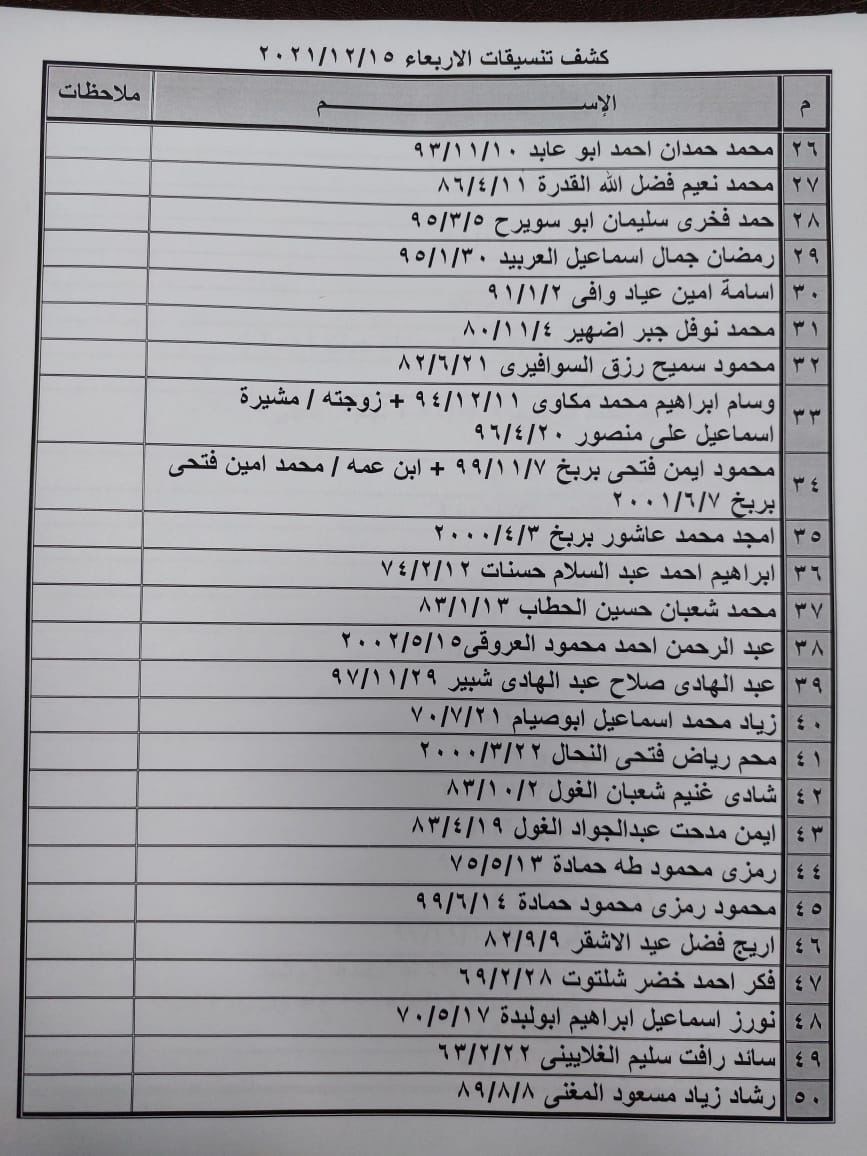 كشف تنسيقات الاربعاء ٢٠٢١/١٢/١٥
م الإســـــــــم ملاحظات
٢٦ محمد حمدان احمد ابو عابد ٩٣/١١/١٠
٢٧ محمد نعيم فضل الله القدرة ٨٦/٤/١١
٢٨ حمد فخرى سليمان ابو سويرح ٩٥/٣/٥
٢٩ رمضان جمال اسماعيل العربيد ٩٥/١/٣٠
٣٠ اسامة امين عياد وافى ٩١/١/٢
٣١ محمد نوفل جبر اضهير ٨٠/١١/٤
٣٢ محمود سميح رزق السوافيرى ٨٢/٦/٢١
٣٣ وسام ابراهيم محمد مكاوى ٩٤/١٢/١١ + زوجته / مشيرة
اسماعيل على منصور ٩٦/٤/٢٠
٣٤ محمود ايمن فتحى بربخ ٩٩/١١/٧ + ابن عمه / محمد امين فتحى
بربخ ٢٠٠١/٦/٧
٣٥ امجد محمد عاشور بربخ ٢٠٠٠/٤/٣
٣٦ ابراهيم احمد عبد السلام حسنات ٧٤/٢/١٢
٣٧ محمد شعبان حسين الحطاب ٨٣/١/١٣
٣٨ عبد الرحمن احمد محمود العروقى٢٠٠٢/٥/١٥
٣٩ عبد الهادى صلاح عبد الهادى شبير ٩٧/١١/٢٩
٤٠ زياد محمد اسماعيل ابوصيام ٧٠/٧/٢١
٤١ محم رياض فتحى النحال ٢٠٠٠/٣/٢٢
٤٢ شادى غنيم شعبان الغول ٨٣/١٠/٢
٤٣ ايمن مدحت عبدالجواد الغول ٨٣/٤/١٩
٤٤ رمزى محمود طه حمادة ٧٥/٥/١٣
٤٥ محمود رمزى محمود حمادة ٩٩/٦/١٤
٤٦ اريج فضل عيد الاشقر ٨٢/٩/٩
٤٧ فكر احمد خضر شلتوت ٦٩/٢/٢٨
٤٨ نورز اسماعيل ابراهيم ابولبدة ٧٠/٥/١٧
٤٩ سائد رافت سليم الغلايينى ٦٣/٢/٢٢
٥٠ رشاد زياد مسعود المغنى ٨٩/٨/٨